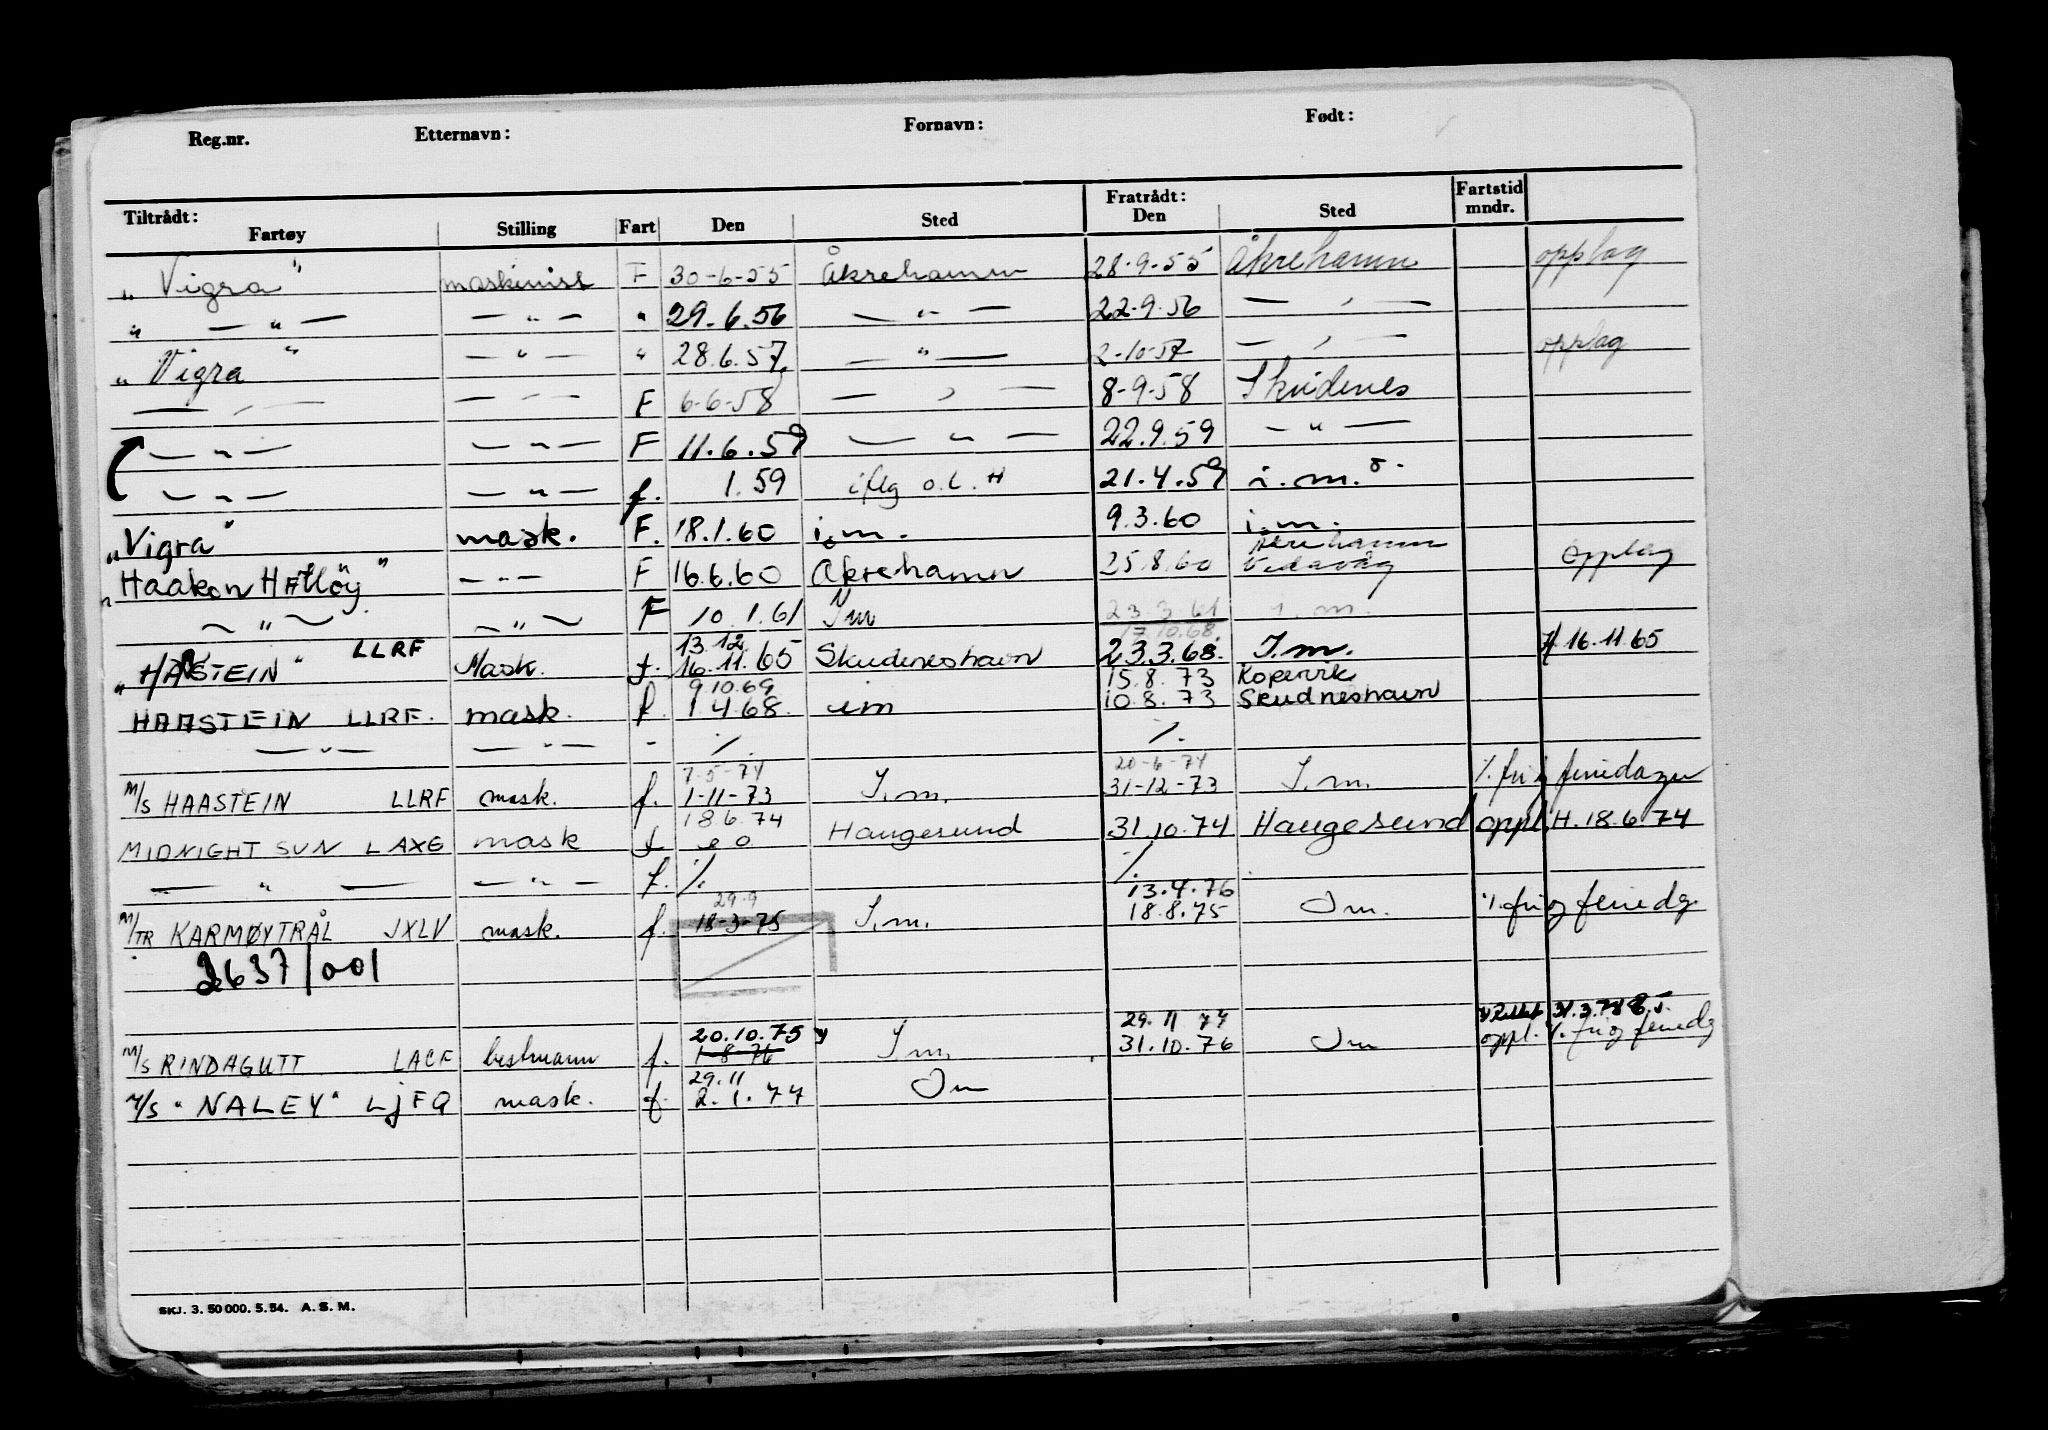 Reg.nr. Etternavn: Fornavn: Født:
Tiltrådt: Fratrådt: Fartstid
Fartøy Stilling Fart Den Sted Den Sted mndr.
„ Vigra " maskinist F 30-6-55 Åkrehamn 28-9-55 Åkrehamn opplag
" — " — — " — " 29.6.56 — " — 22.9.56 — " —
„ Vigra " — " — " 28.6.57 — " — 2-10-57 — " — opplag
— " — — " — F 6-6-58 — " — 8-9-58 Skudenes
— " — — " — F 11.6.59 — " — 22.9.59 — " —
— " — — " — f. 1.59 iflg o.l. H 21.4.59 i.m.
„Vigra" mask. F. 18.1.60 i.m. 9.3.60 i.m.
Åkrehamn
„Haakon Hattöy" — " — F 16.6.60 Åkrehamn 25.8.60 Vedavåg opplag
— " — — " — F 10.1.61 Im 23.3.61 i.m.
13.12. 17.10.68.
„HAASTEIN" LLRF Mask. f. 16.11.65 Skudeneshavn 23.3.68. I.m. H 16.11.65
9.10.69 15.8.73 Kopervik
HAASTEIN LLRF. mask. f 1.4.68. im 10.8.73 Skudneshavn
— " — — " — - ./. ./.
7-5-74 20-6-74
M/S HAASTEIN LLRF mask. f. 1-11-73 I.m. 31-12-73 I.m. ./. fri og feriedager
18.6.74
MIDNIGHT SUN LAXG mask f Haugesund 31.10.74 Haugesund oppl. H. 18.6.74
— " — — " — f. ./. ./.
29.9 13.4.76
M/TR KARMØYTRÅL JXLV mask. f. 18-3-75 I.m. 18.8.75 Im. ./. fri og feriedg
2637/001
20.10.75 29.11 77 31.3.78
M/S RINDAGUTT LACF bestmann f. 1-8-76 I.m. 31.10.76 Im oppl. ./. fri og feriedg
29.11
M/S "NALEY" LJFQ mask. f. 2.1.77 Im
SKJ. 3. 50 000. 5. 54. A. S. M.